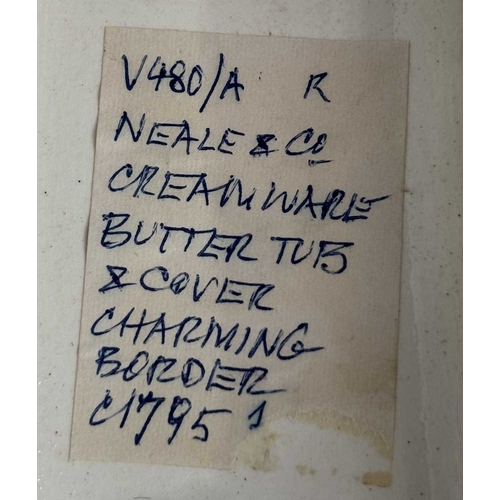 V480/A R
NEALE & Co
CREAMWARE
BUTTER TUB
& COVER
CHARMING
BORDER
C1795